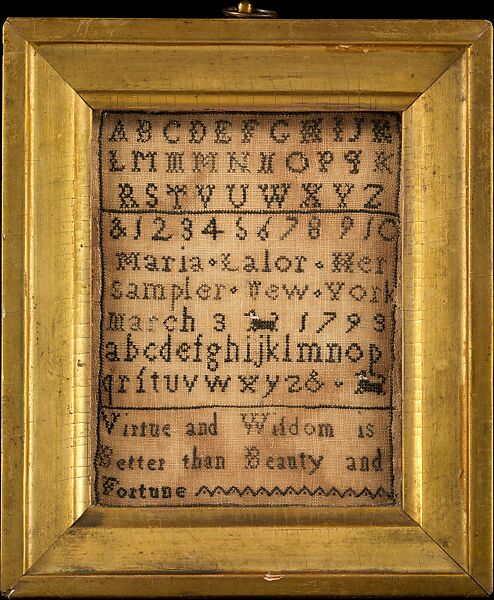 A B C D E F G H I J K
L M M M N N O P q K
R S T V U W X Y Z
& 1 2 3 4 5 6 7 8 9 10
Maria Lalor Her
Sampler New York
March 3 1793
a b c d e f g h i j k l m n o p
q r ſ t u v w x y z &
Virtue and Wiſdom is
Better than Beauty and
Fortune